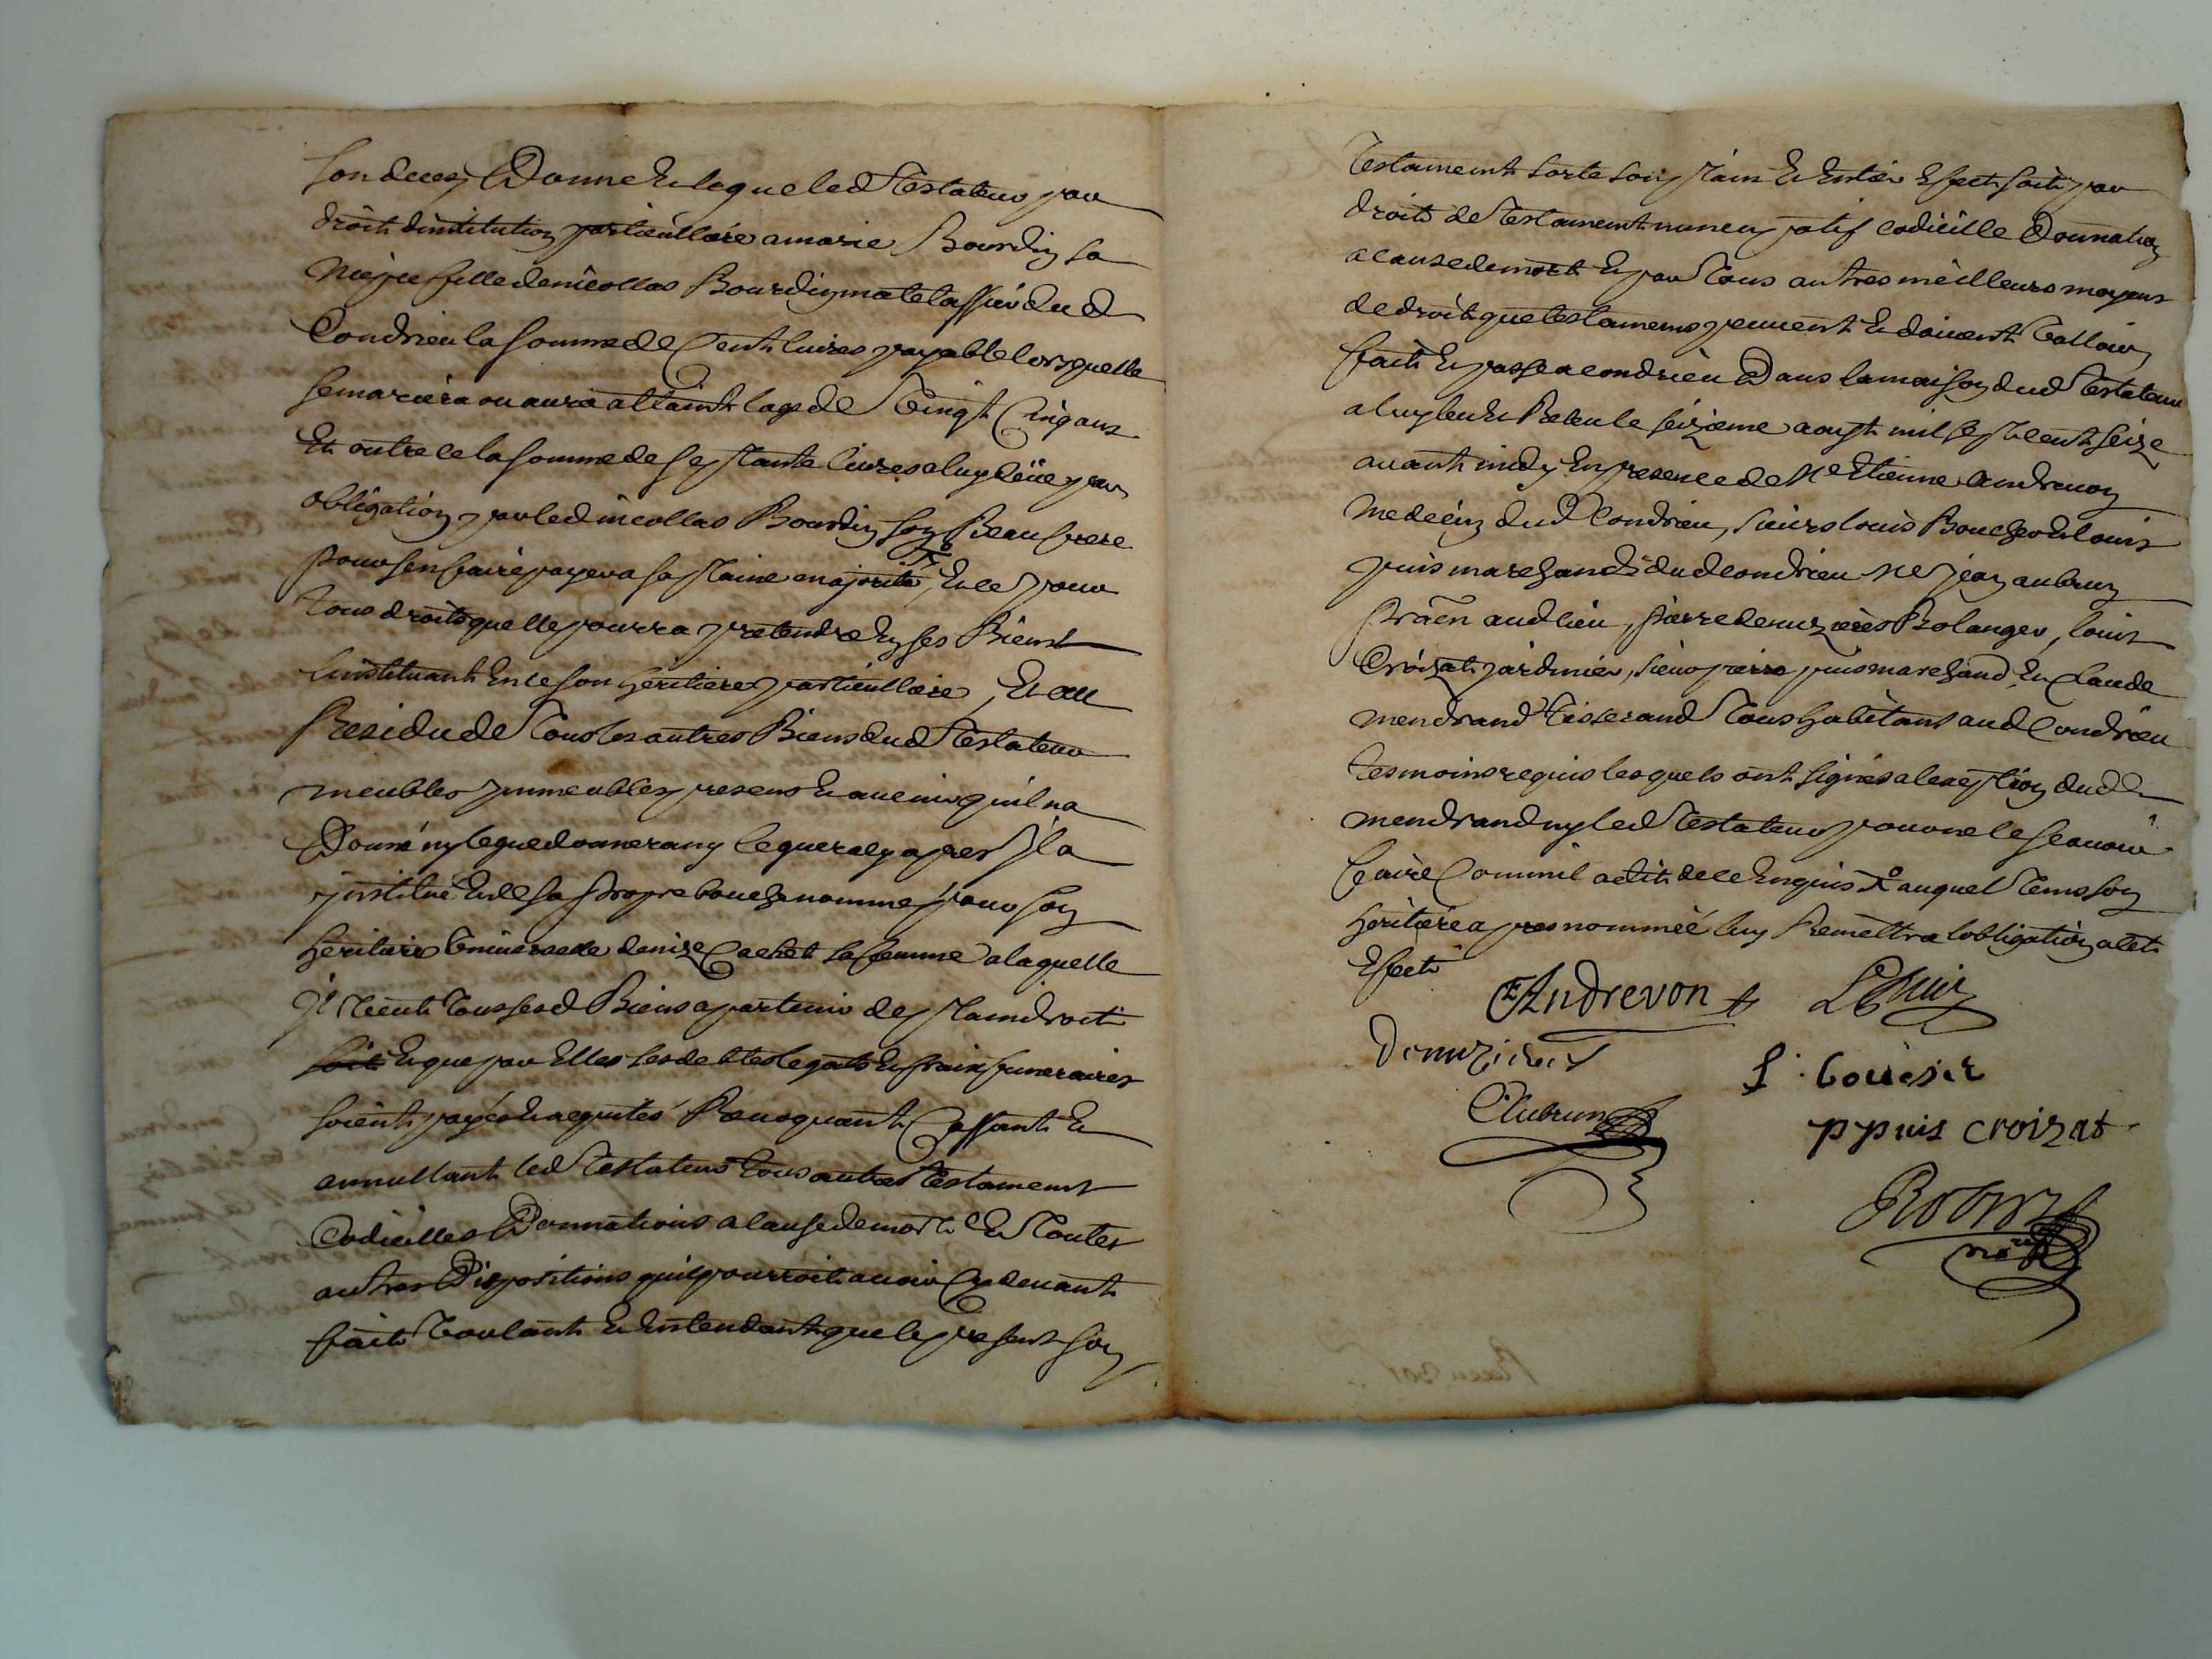 son deces, Donne et legue led Testateur par
droit dinstitution particulliere a marie Bourdin sa
niepce fille de nicollas Bourdin matelassier dud
Condrieu la somme de Cent livres payable lorsquelle
se mariera ou aura attaint lage de Vingt Cinq ans
Et outre ce la somme de septante livres a luy deüe par
obligation par led nicollas Bourdin son Beaufrere
pour sen faire payer a sa plaine majorité, Et ce pour
tous droits quelle pourra pretendre en ses Biens
Linstituant en ce son heritiere particulliere, Et au
Residu de Tous les autres Biens dud Testateur
meubles Immeubles presens et avenir quil na
Donné ny legué donnera ny leguera cy apres Il a
institué et de sa propre bouche nommé pour son
heritiere Universelle denize Cachet sa femme a laquelle
Il Veut Tous sesd Biens apartenir de plain droit
soit Et que par Elle ses debtes legats et fraix funeraires
soient payés et aquités Revoquant Cassant et
annullant led Testateur tous autres Testamens
Codicilles Donnations a cause de mort Et Toutes
autres Dispositions quil pourroit avoir Cy devant
fait Voulant et entendant que le present son
Testament sorte son plain et entier Effect soit par
droit de Testament nuncupatif codicille Donnation
a cause de mort et par Tous autres meilleurs moyens
de droit que testamens peuvent et doivent Valloir,
fait et passé a condrieu Dans la maison dud Testateur
a luy leu et Releu le seizieme aoust mil sept cent seize
avant midy En presence de Me Etienne Andrevon
medecin dud Condrieu, sieurs louis Boucher et louis
puis marchands dud condrieu Me jean aubrun
praen aud lieu, pierre denuzieres Bolanger, louis
Croizat jardinier, sieur pierre puis marchand, Et Claude
mendrand Tisserand Tous habitans aud Condrieu
tesmoins requis lesquels ont signés a lexeption dud
mendrand ny led Testateur pour ne le sçavoir
faire Comm'il a dit de ce Enquis auquel Tems son
heritiere apres nommée luy Remettra lobligation a cet
Effect
EAndrevon L Puis
Denuzieres
Aubrun
ppuis croizat